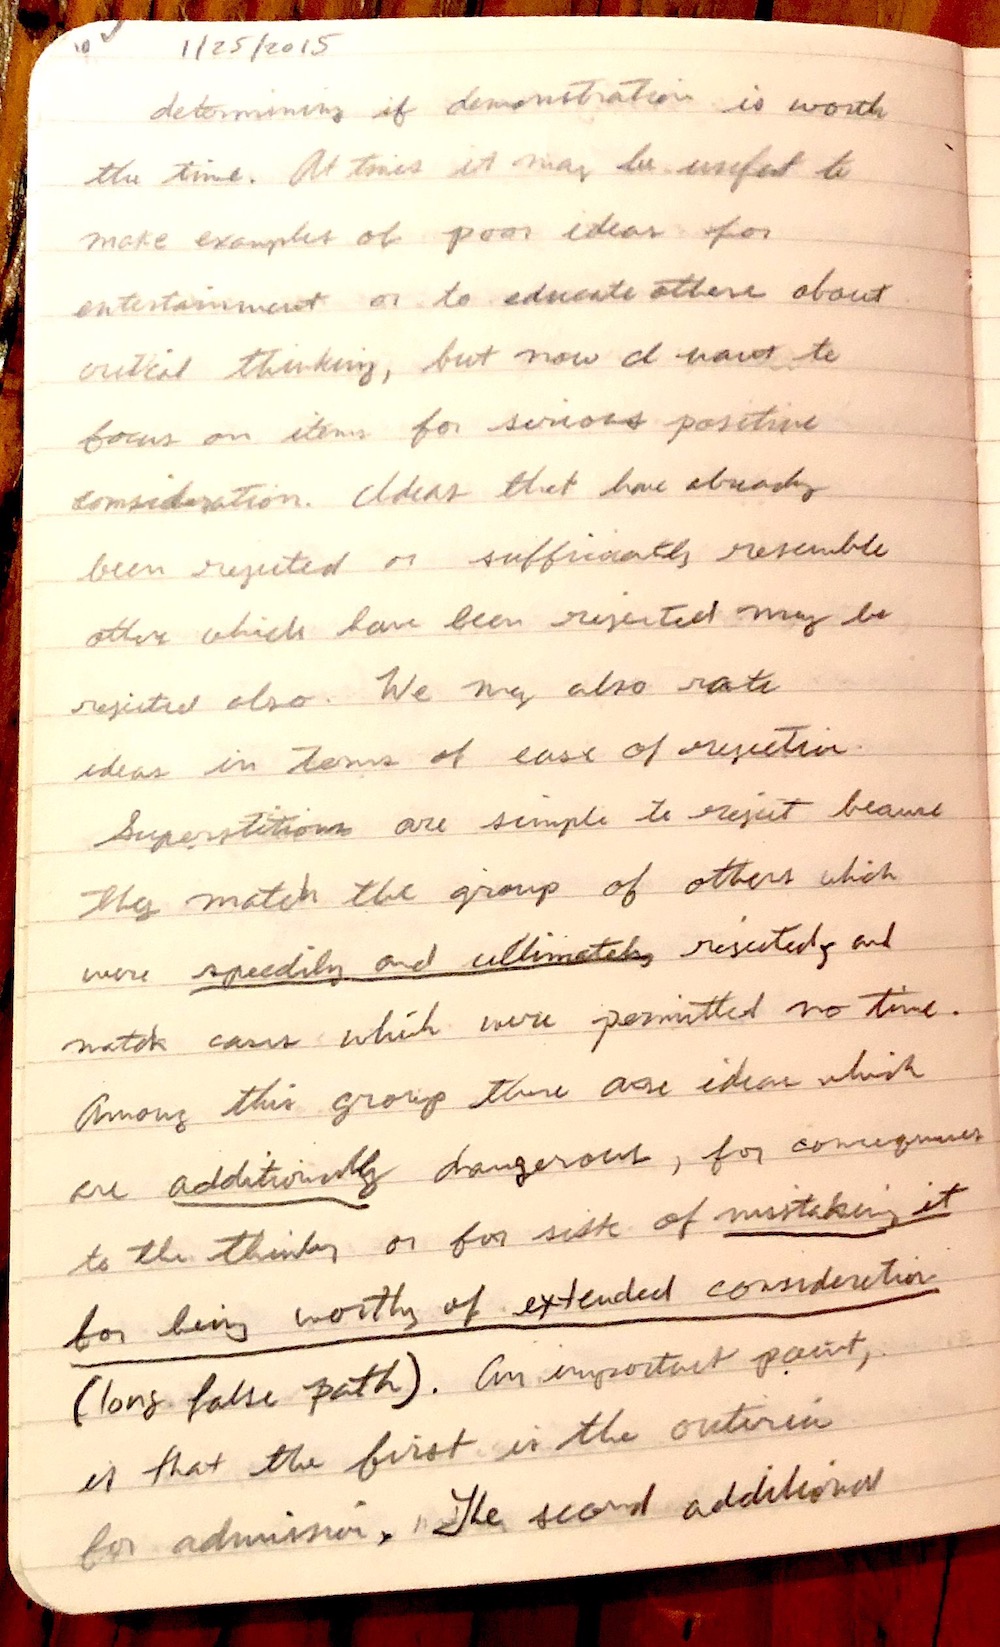 1/25/2015
determining if demonstration is worth
the time. At times it may be useful to
make examples of poor ideas for
entertainment or to educate others about
critical thinking, but now I want to
focus on items for serious positive
consideration. Ideas that have already
been rejected or sufficiently resemble
other which have been rejected may be
rejected also. We may also rate
ideas in terms of ease of rejection.
Superstitions are simple to reject because
they match the group of others which
were speedily and ultimately rejected, and
match cases which were permitted no time.
Among this group there are ideas which
are additionally dangerous, for consequences
to the thinker or for risk of mistaking it
for being worthy of extended consideration
(long false path). An important point,
is that the first is the criteria
for admission. The second additional